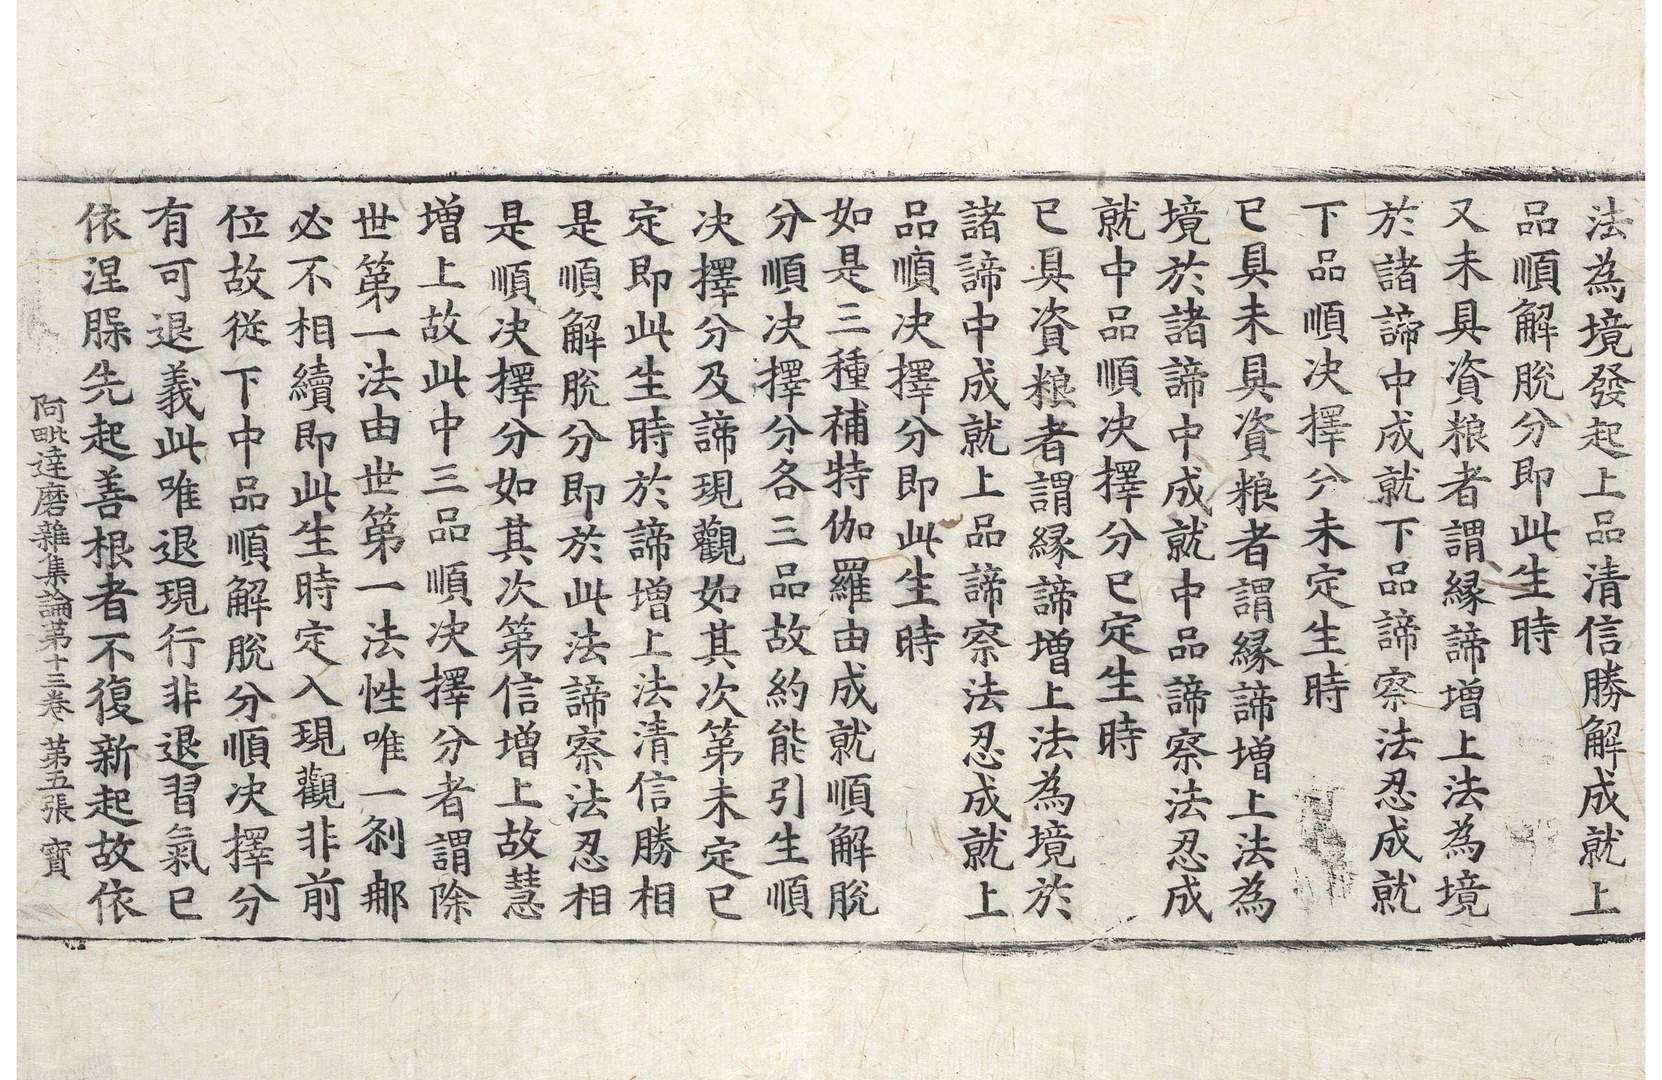 法為境發起上品清信勝解成就上
品順解脫分即此生時
又未具資粮者謂縁諦增上法為境
於諸諦中成就下品諦察法忍成就
下品順決擇分未定生時
已具未具資粮者謂縁諦增上法為
境於諸諦中成就中品諦察法忍成
就中品順决擇分已定生時
已具資粮者謂縁諦增上法為境於
諸諦中成就上品諦察法忍成就上
品順决擇分即此生時
如是三種補特伽羅由成就順解脫
分順决擇分各三品故約能引生順
决擇分及諦現觀如其次第未定已
定即此生時於諦增上法清信勝相
是順解脫分即於此法諦察法忍相
是順决擇分如其次第信增上故慧
增上故此中三品順决擇分者謂除
世第一法由世第一法性唯一剎那
必不相續即此生時定入現觀非前
位故從下中品順解脫分順决擇分
有可退義此唯退現行非退習氣已
依涅槃先起善根者不復新起故依
阿毗達磨雜集論第十三卷 第五張 寳